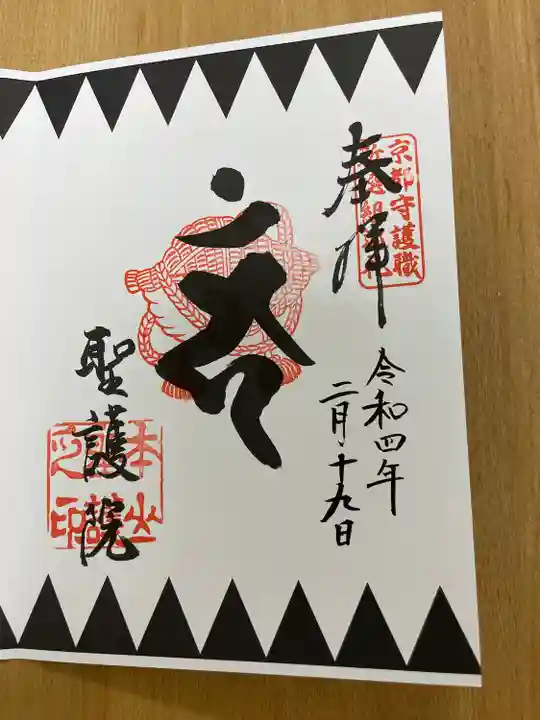 京都守護職
新選組
奉拝
令和四年
二月十九日
聖護院
本山
之印